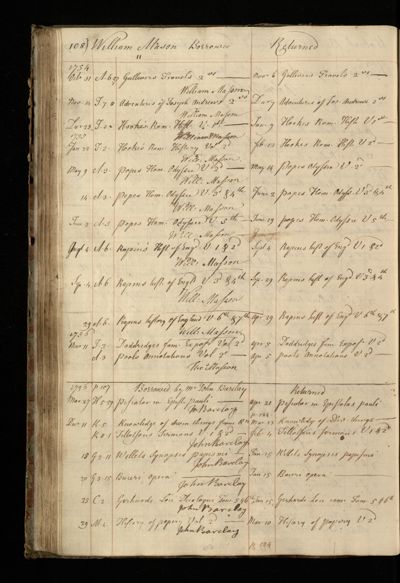 108) William Mason Borrowed Returned
1754
Oct 31 A. 6. 97 Gullivers Travels 2 vol Nov 6 Gullivers Travels 2 vol
William Masson
Nov 21 I. 7. 8 Adventures of Joseph Andrews 2 vol Dec 7 Adventures of Jos. Andrews 2 vol
William Masson
Dec 23 I. 2 Hooke's Rom: Hist. V. 1st Jan 9 Hookes Rom. Hist. V 1st
1755 William Masson
Jan 22 I. 2 Hooke's Rom: History Vol 2d Feb 13 Hookes Rom. Hist. V 2d
Will. Masson
May 9 d. 3 popes Hom: Odyssey V 2d May 14 Popes Odyssey V. 2d
Will. Masson
14 d. 3 popes Hom. Odyssey V 3d & 4th June 2 popes Hom. Odyss. V 3d & 4th
Will. Masson
June 2 d. 3 popes Hom: Odyssey V 5th June 19 popes Hom. Odyssey V 5th
Will. Masson
A. 6 Rapin's Hist of Eng V 1 & 2 Sept 4 Rapins hist of Engd V 1 & 2d
Will. Masson
Sep. 4 A. 6 Rapins hist. of Engld V 3d & 4th Sep. 29 Rapins hist of Engd V 3d & 4th
Will. Masson
29 A. 6 Rapins history of England V 6th & 7th Rapins hist of Engd V 6th & 7th
Will Masson
Nov 11 I. 3 Doddridges fam: Exposr Vol 2 apr 5 Doddridges fam Exposr V 2d
d. 3 pools Annotations Vol 2d apr 5 pools Annotations V 2d
Masson
p. 107 Borrowed by Mr John Barclay Returned
Mar 27 piscator in Epist. pauli apr 21 Piscator in Epistolas pauli
Jo Barclay
Dec 11 K. 5 Knowledge of divine things from Mar 23 Knowledge of Div. things
K. 8. 1 Tillotsons Sermons 1st & 2d Feb 4 Tillotsons sermons V 1 & 2d
John Barclay
18 G. 2. 11 Willets Synopsis papismi Jan 15 Willets Synopsis papismi
John Barclay
20 G. 2. 15 opera Jan 15 opera
John Barclay
23 C. 2 Gerhards Loci Theologici Tom 5 & 6 Jan 15 Gerhards Loci com: Tom 5 & 6th
John Barclay
29 M. 2 History of popery Vol 2d Mar 10 History of popery V 2d
John Barclay